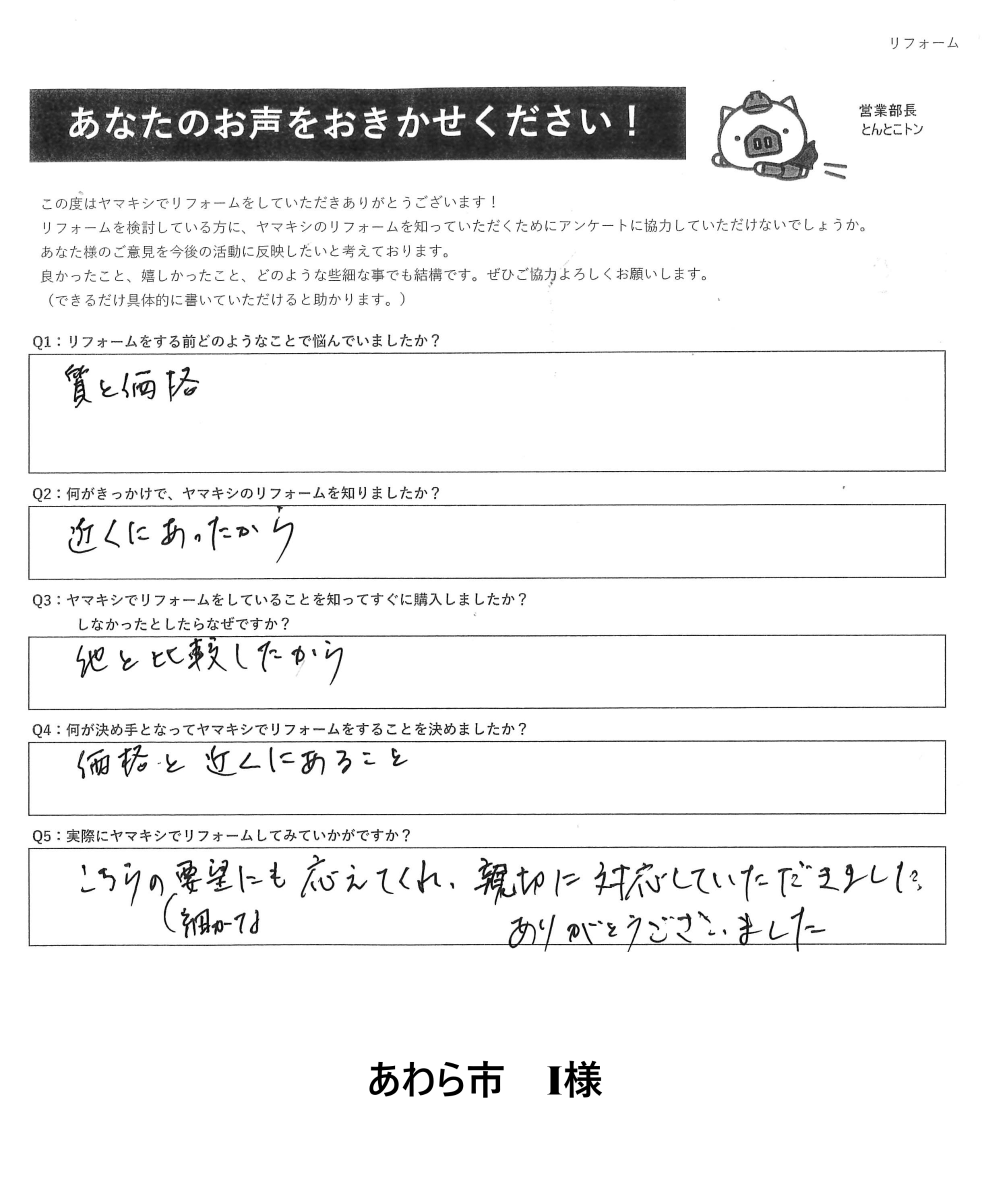 リフォーム
あなたのお声をおきかせください！
営業部長
とんとこトン
この度はヤマキシでリフォームをしていただきありがとうございます！
リフォームを検討している方に、ヤマキシのリフォームを知っていただくためにアンケートに協力していただけないでしょうか。
あなた様のご意見を今後の活動に反映したいと考えております。
良かったこと、嬉しかったこと、どのような些細な事でも結構です。ぜひご協力よろしくお願いします。
（できるだけ具体的に書いていただけると助かります。）
Q1：リフォームをする前どのようなことで悩んでいましたか？
質と価格
Q2：何がきっかけで、ヤマキシのリフォームを知りましたか？
近くにあったから
Q3：ヤマキシでリフォームをしていることを知ってすぐに購入しましたか？
しなかったとしたらなぜですか？
他と比較したから
Q4：何が決め手となってヤマキシでリフォームをすることを決めましたか？
価格と近くにあること
Q5：実際にヤマキシでリフォームしてみていかがですか？
こちらの要望にも応えてくれ、親切に対応していただきました。
（細かな
ありがとうございました
あわら市　I様